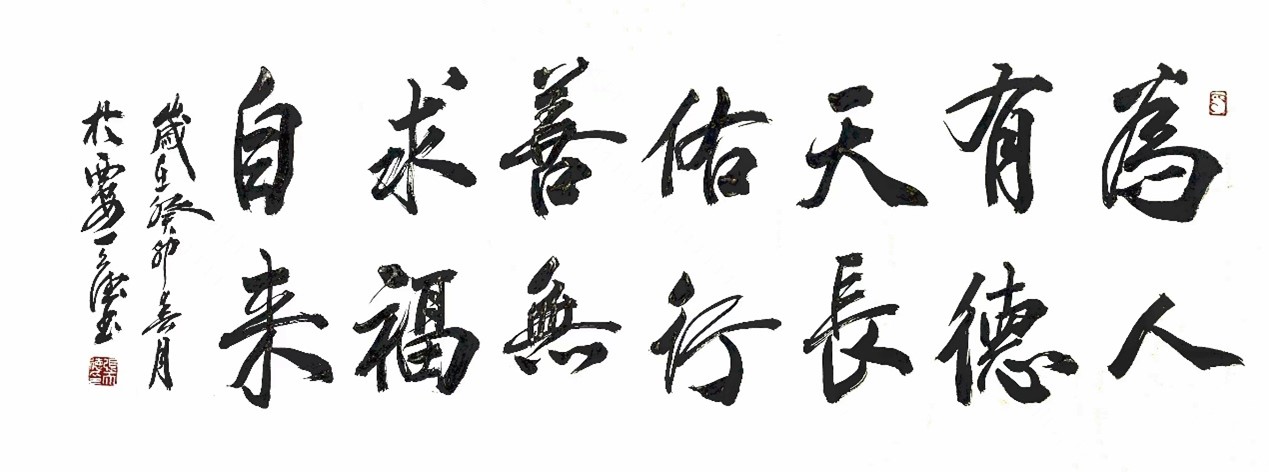 為人
有德
天長
佑行
善無
求福
自来
歲在癸卯春月
於西安